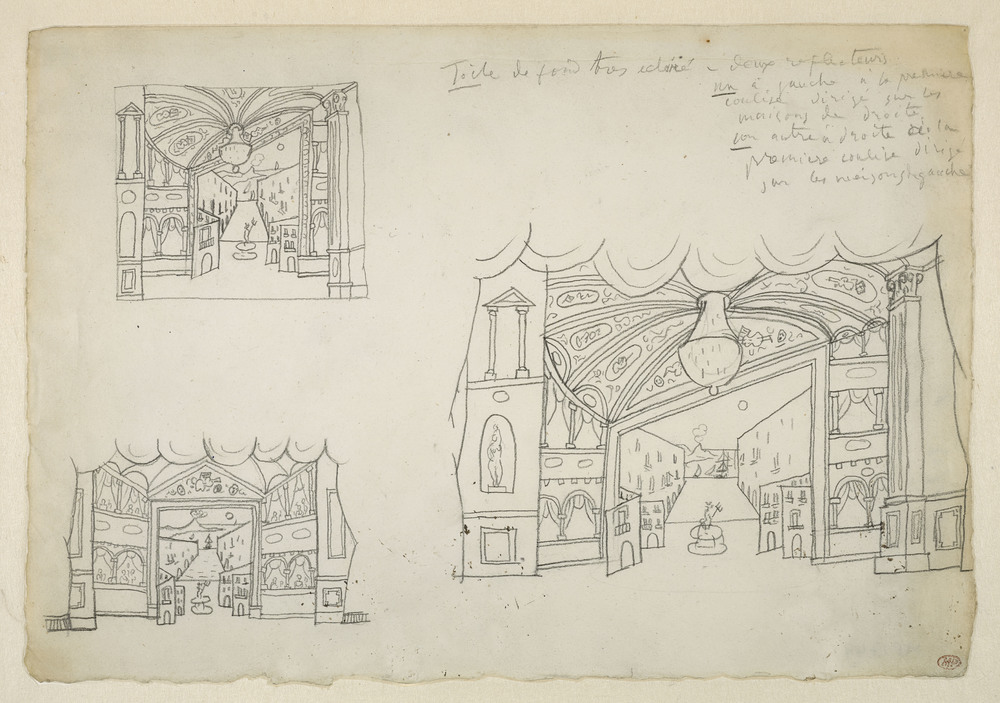 Toile de fond très éclairé - deux reflecteurs.
un à gauche à la premiere
coulise dirigé sur les
maisons de droite
un autre à droite de la
premiere coulise dirigé
sur les maisons gauche